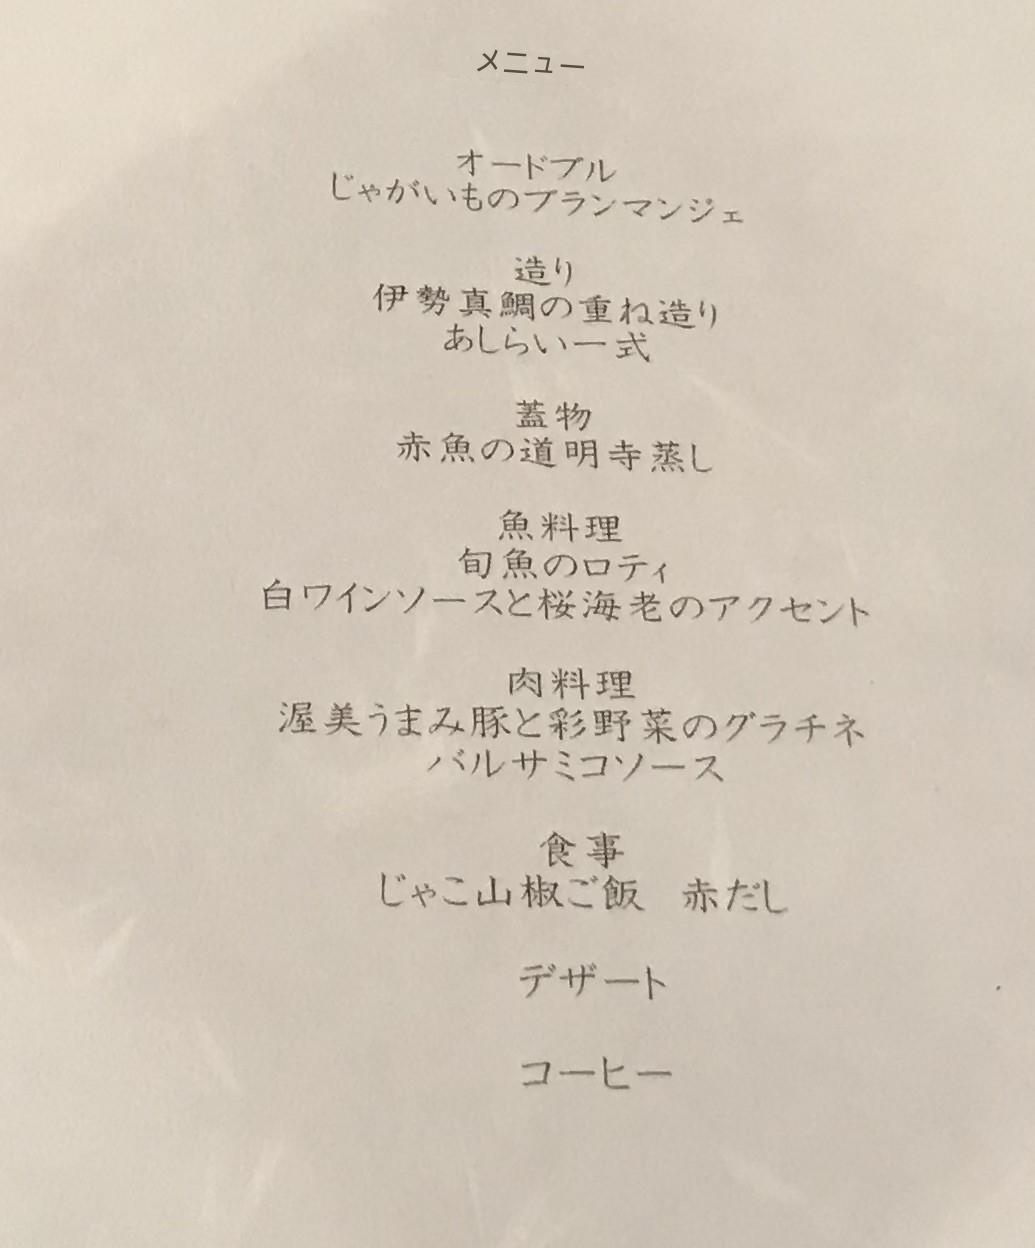 メニュー
オードブル
じゃがいものブランマンジェ
造り
伊勢真鯛の重ね造り
あしらい一式
蓋物
赤魚の道明寺蒸し
魚料理
旬魚のロティ
白ワインソースと桜海老のアクセント
肉料理
渥美うまみ豚と彩野菜のグラチネ
バルサミコソース
食事
じゃこ山椒ご飯　赤だし
デザート
コーヒー